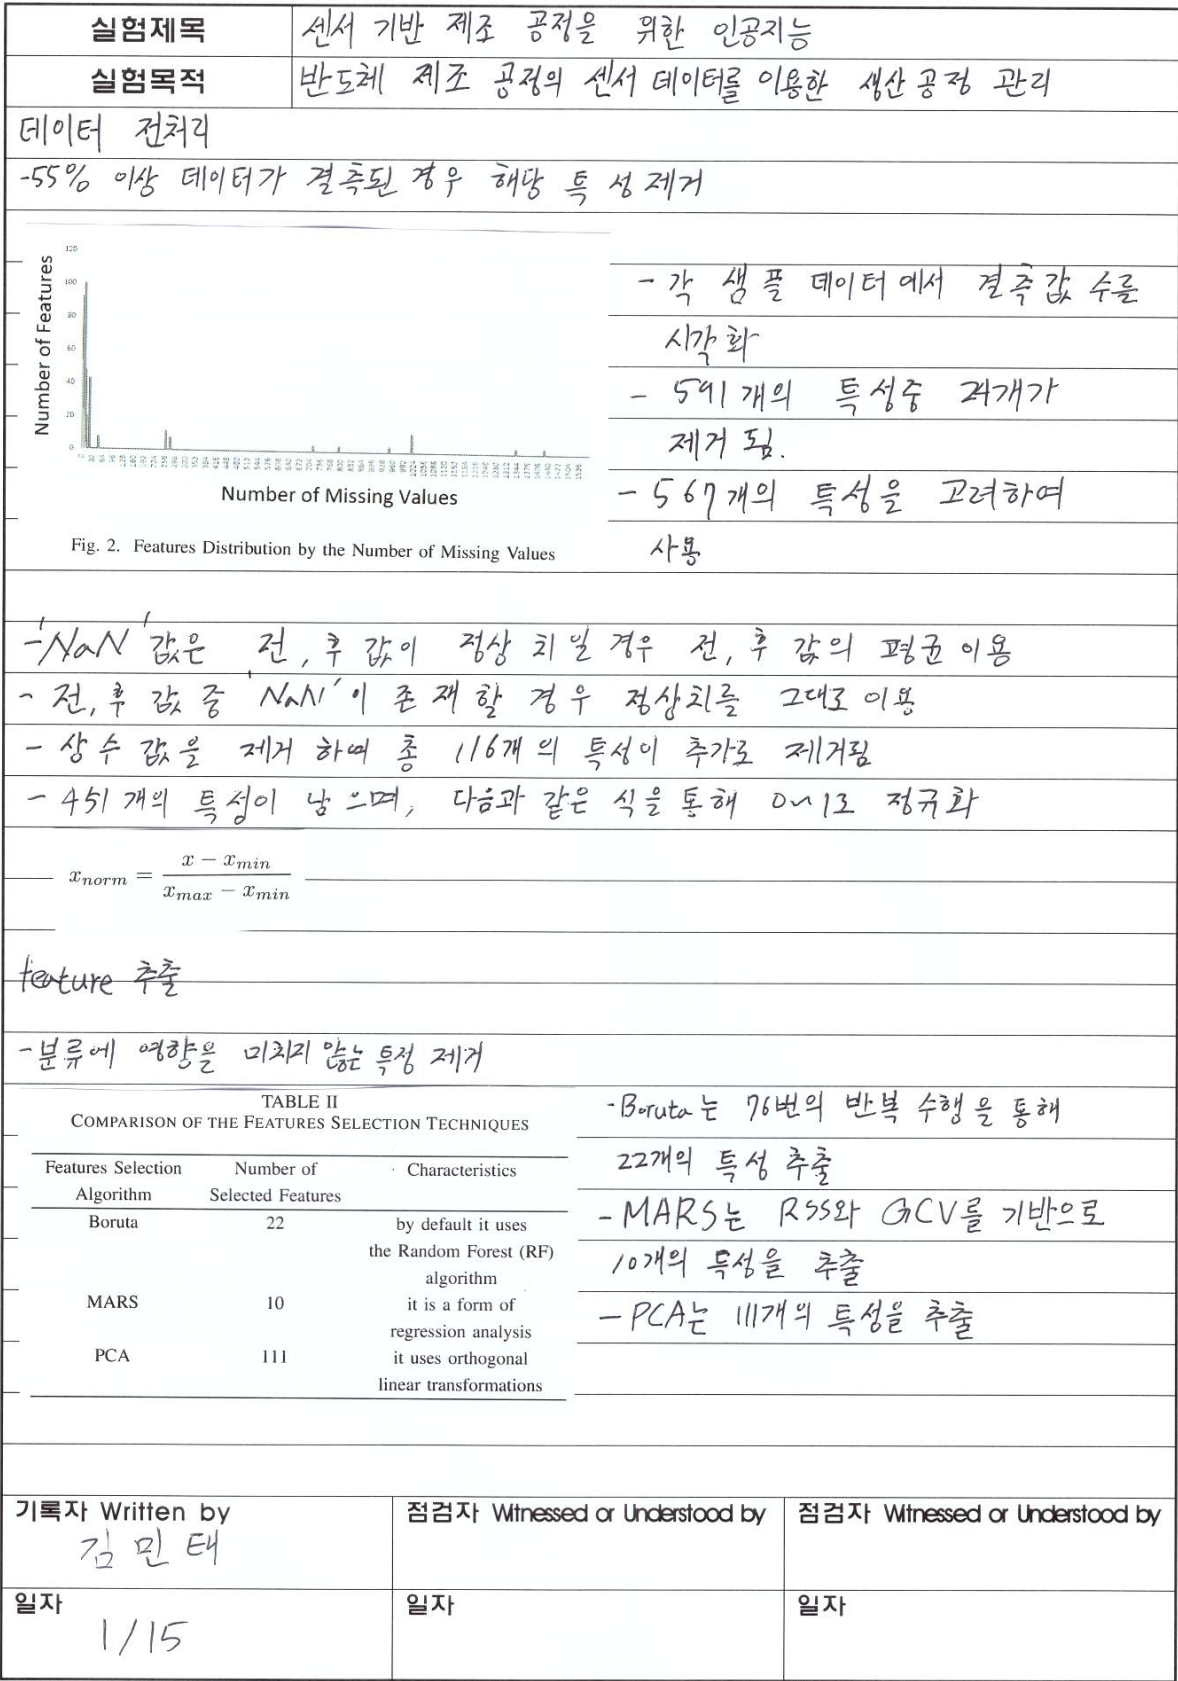 실험제목 센서 기반 제조 공정을 위한 인공지능
실험목적 반도체 제조 공정의 센서 데이터를 이용한 생산 공정 관리
데이터 전처리
-55% 이상 데이터가 결측된 경우 해당 특성 제거
Number of Features
120
100
80
60
40
20
0
Number of Missing Values
Fig. 2. Features Distribution by the Number of Missing Values
- 각 샘플 데이터에서 결측값 수를
시각화
- 591개의 특성중 24개가
제거 됨.
- 567개의 특성을 고려하여
사용
- 'NaN' 값은 전, 후 값이 정상치일 경우 전, 후 값의 평균 이용
- 전, 후 값 중 'NaN'이 존재할 경우 정상치를 그대로 이용
- 상수 값을 제거하여 총 116개의 특성이 추가로 제거됨
- 451개의 특성이 남으며, 다음과 같은 식을 통해 0~1로 정규화
x_norm = (x − x_min) / (x_max − x_min)
feature 추출
-분류에 영향을 미치지 않는 특정 제거
TABLE II
COMPARISON OF THE FEATURES SELECTION TECHNIQUES
Features Selection Number of Characteristics
Algorithm Selected Features
Boruta 22 by default it uses
the Random Forest (RF)
algorithm
MARS 10 it is a form of
regression analysis
PCA 111 it uses orthogonal
linear transformations
-Boruta는 76번의 반복 수행을 통해
22개의 특성 추출
- MARS는 RSS와 GCV를 기반으로
10개의 특성을 추출
- PCA는 111개의 특성을 추출
기록자 Written by 점검자 Witnessed or Understood by 점검자 Witnessed or Understood by
김민태
일자 일자 일자
1/15